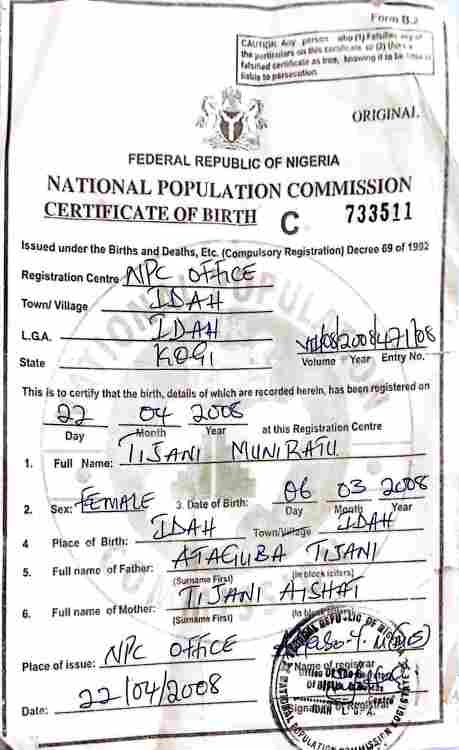 Form B.2
CAUTION Any person who (1) Falsifies any of
the particulars on this certificate or (2) Uses a
falsified certificate as true, knowing it to be false is
liable to persecution
ORIGINAL
FEDERAL REPUBLIC OF NIGERIA
NATIONAL POPULATION COMMISSION
CERTIFICATE OF BIRTH C 733511
Issued under the Births and Deaths, Etc. (Compulsory Registration) Decree 69 of 1992
Registration Centre NPC OFFICE
Town/ Village IDAH
L.G.A. IDAH
State KOGI
Volume Year Entry No.
This is to certify that the birth, details of which are recorded herein, has been registered on
22 04 2008
Day Month Year at this Registration Centre
1. Full Name: TIJANI MUNIRATU
2. Sex: FEMALE 3. Date of Birth: 06 03 2008
Day Month Year
4 Place of Birth: IDAH Town/Village IDAH
5. Full name of Father: ATAGUBA TIJANI
(Surname First) (in block letters)
6. Full name of Mother: TIJANI AISHAT
(Surname First) (In block letters)
Place of issue: NPC OFFICE
Name of registrar
Date: 22/04/2008
Signature of Registrar
IDAH L.G.A.